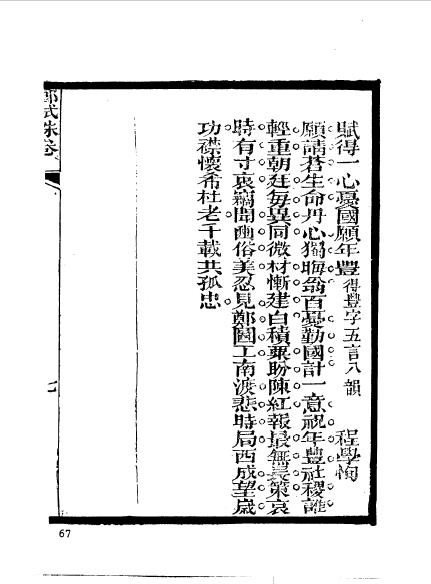 賦得一心憂國願年豐 得豐字五言八韻 程學恂
願請蒼生命丹心獨晦翁百憂勤國計一意祝年豐社稷誰
輕重朝廷每異同微材慚建白積粟盼陳紅報最無農策哀
時有寸衷竊聞豳俗美忍見鄭圖工南淚悲時局西成望歲
功襟懷希杜老千載共孤忠
鄉試硃卷
67